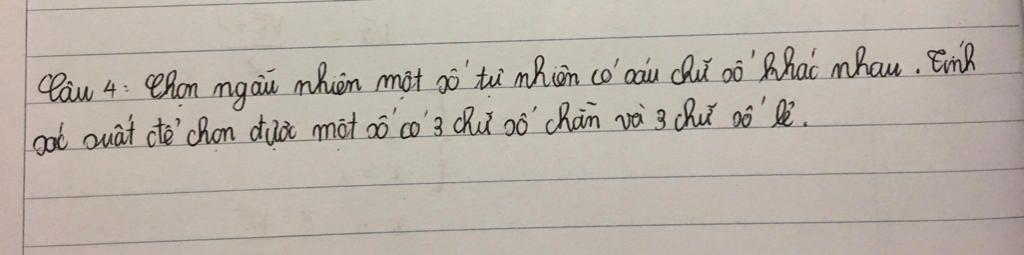 Câu 4: Chọn ngẫu nhiên một số tự nhiên có sáu chữ số khác nhau. Tính
xác suất để chọn được một số có 3 chữ số chẵn và 3 chữ số lẻ.